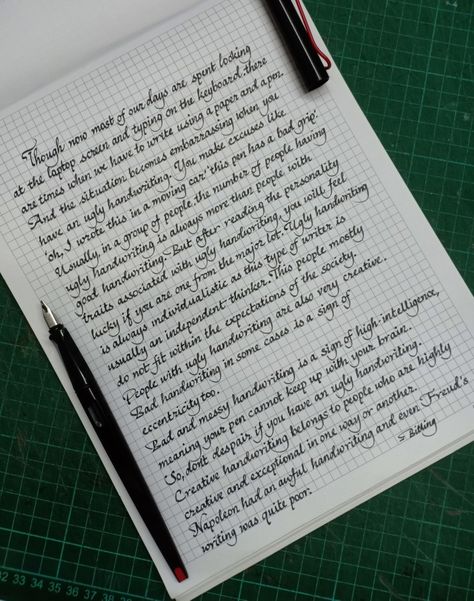 Though now most of our days are spent looking
at the laptop screen and typing on the keyboard, there
are times when we have to write using a paper and a pen.
And the situation becomes embarrassing when you
have an ugly handwriting. You make excuses like
'oh, I wrote this in a moving car' 'this pen has a bad grip'.
Usually in a group of people, the number of people having
ugly handwriting is always more than people with
good handwriting. But after reading the personality
traits associated with ugly handwriting, you will feel
lucky if you are one from the major lot. Ugly handwriting
is always individualistic as this type of writer is
usually an independent thinker. This people mostly
do not fit within the expectations of the society.
People with ugly handwriting are also very creative.
Bad handwriting in some cases is a sign of
eccentricity too.
Bad and messy handwriting is a sign of high-intelligence,
meaning your pen cannot keep up with your brain.
So, dont despair if you have an ugly handwriting.
Creative handwriting belongs to people who are highly
creative and exceptional in one way or another.
Napoleon had an awful handwriting and even Freud's
writing was quite poor.
32 33 34 35 36 37 38 39 40